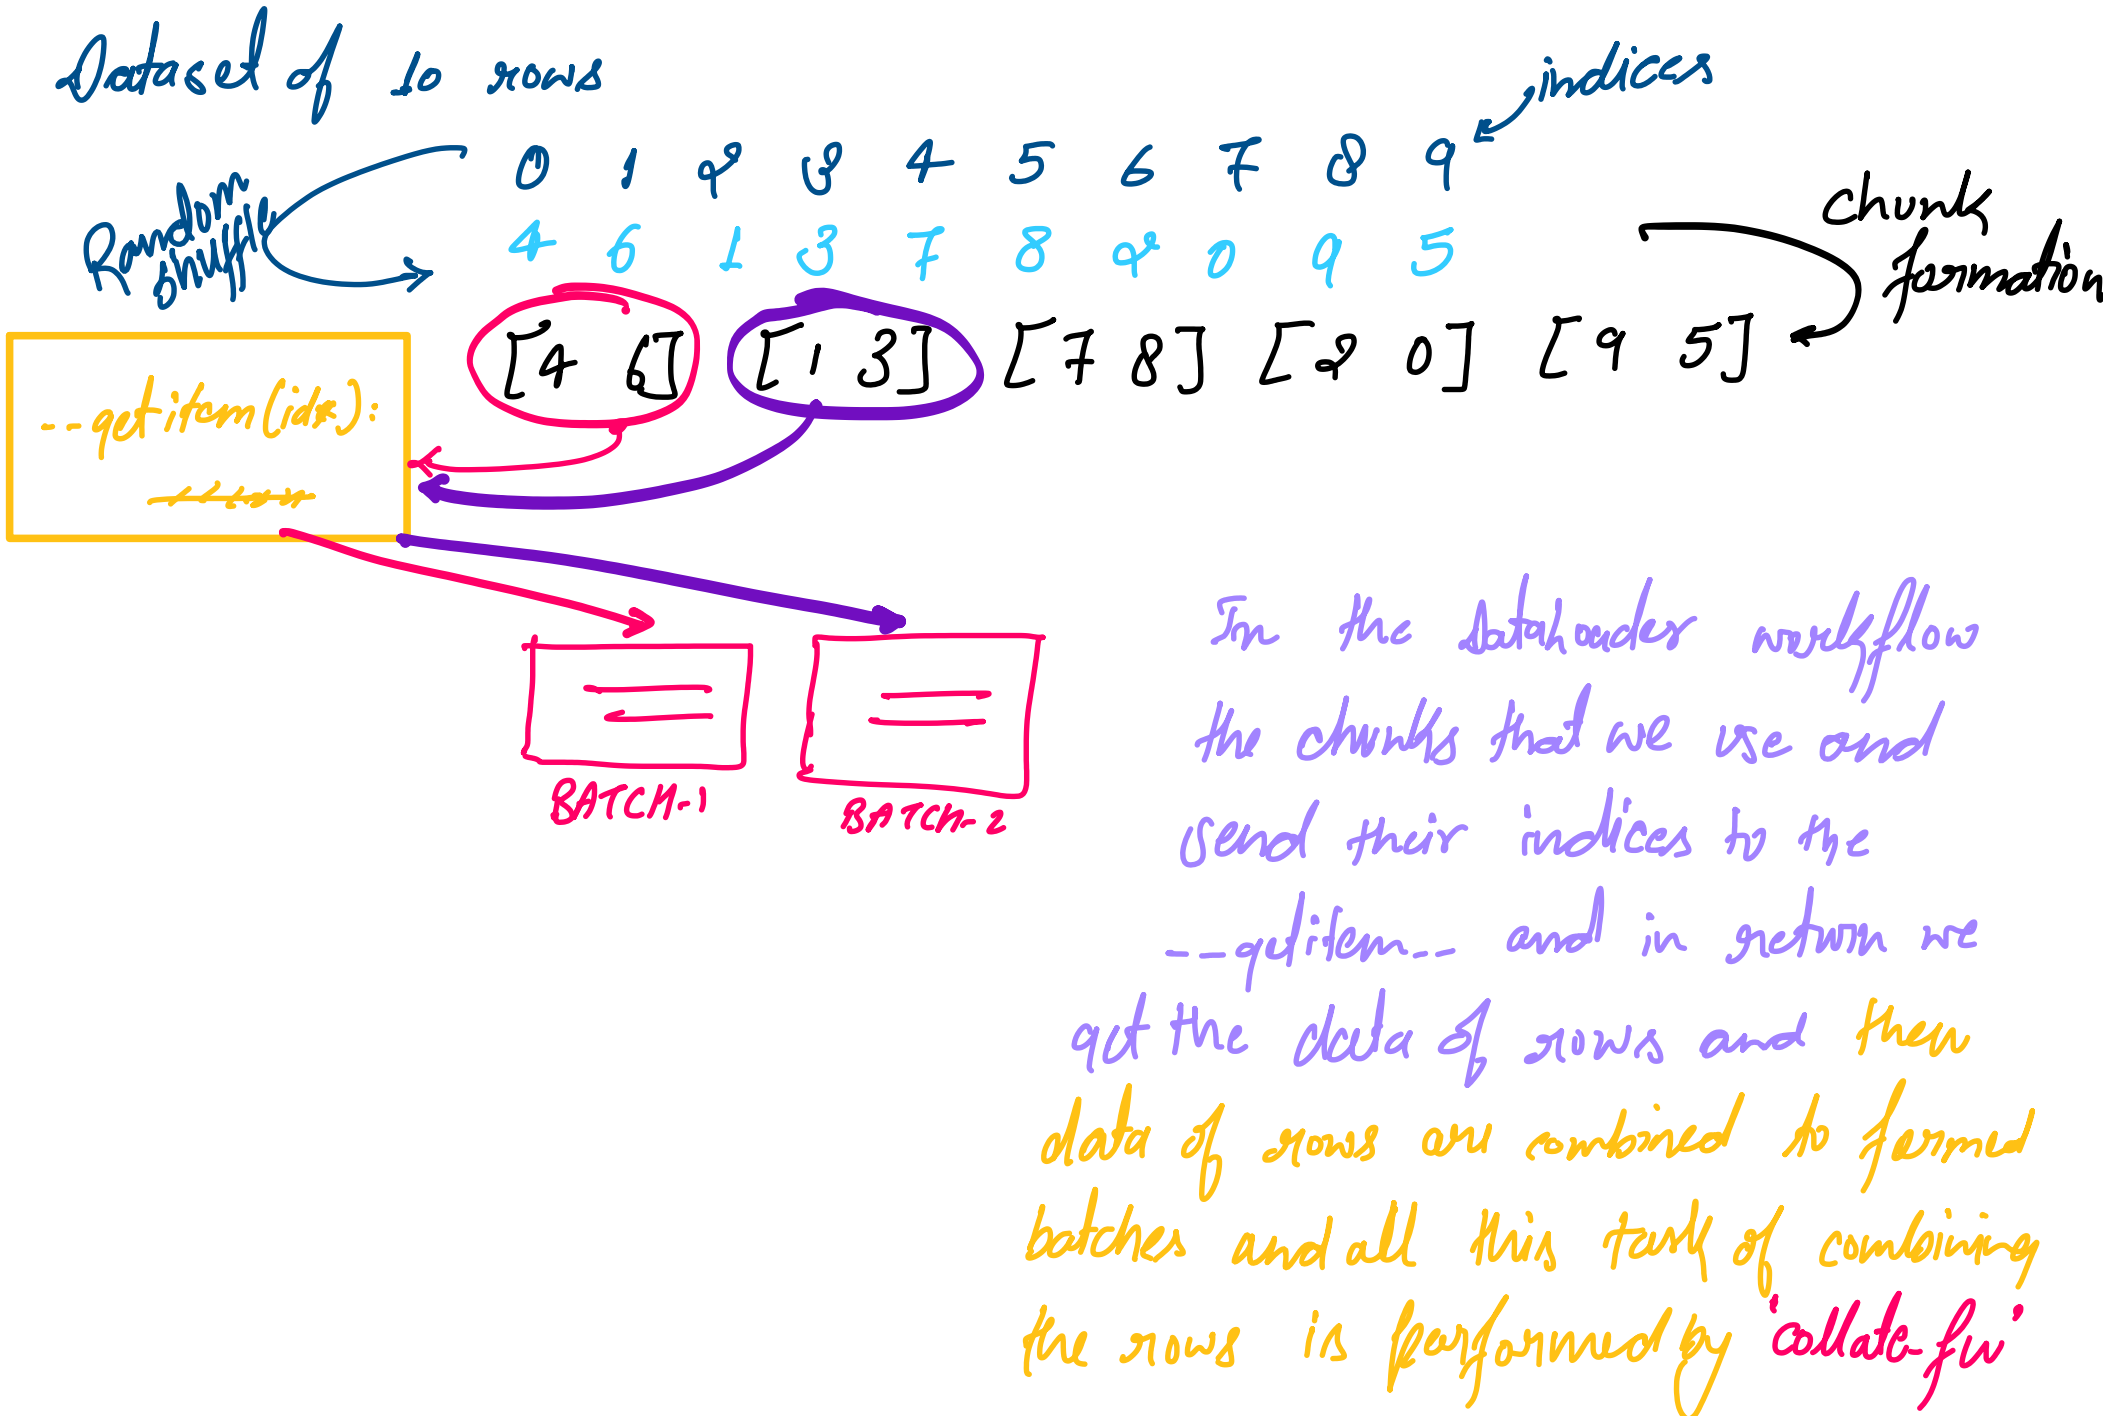 Dataset of 10 rows
indices
0 1 2 3 4 5 6 7 8 9
Random
shuffle
4 6 1 3 7 8 2 0 9 5
chunk
formation
[4 6] [1 3] [7 8] [2 0] [9 5]
--getitem(idx):
BATCH-1
BATCH-2
In the DataLoader workflow
the chunks that we use and
send their indices to the
--getitem-- and in return we
get the data of rows and then
data of rows are combined to formed
batches and all this task of combining
the rows is performed by 'collate-fn'